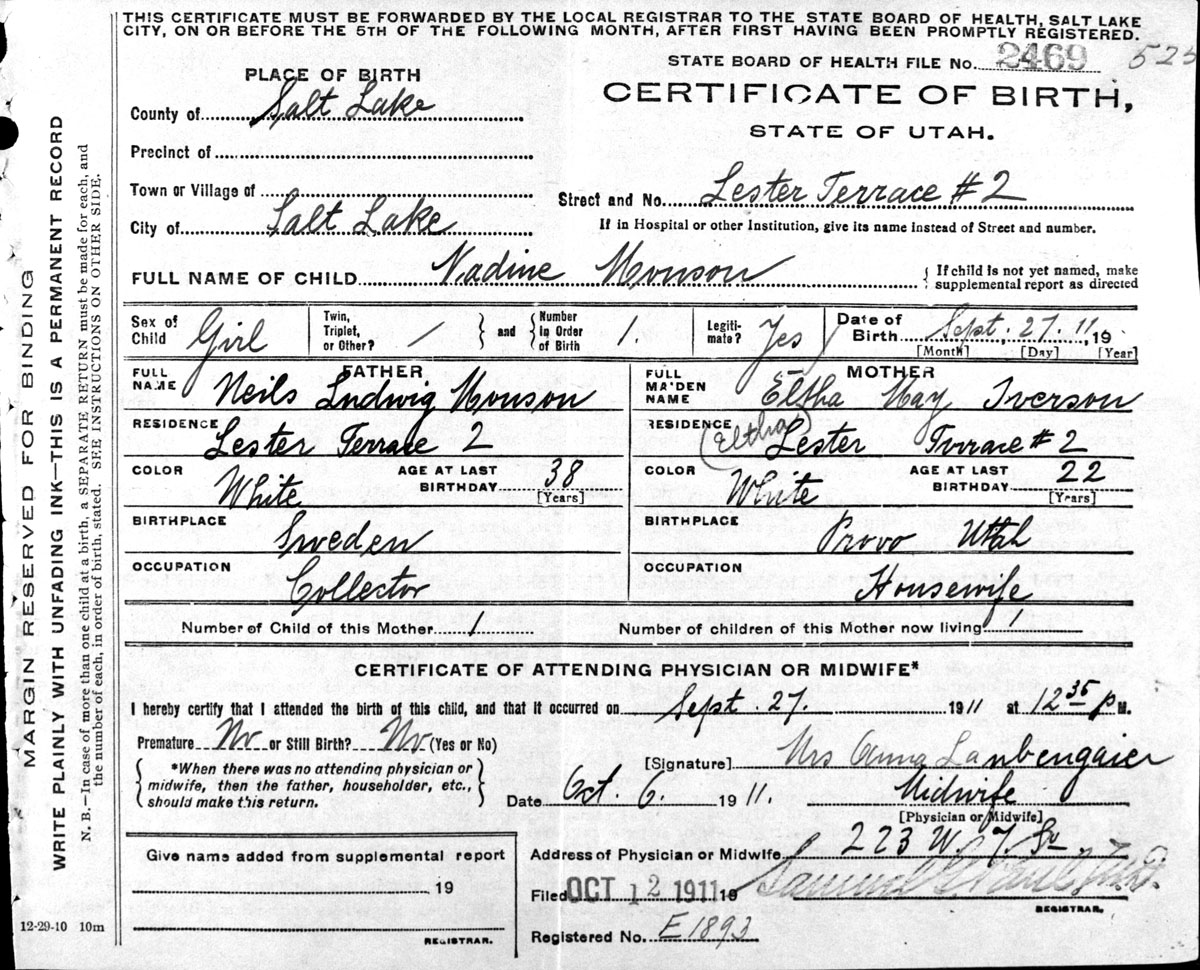 THIS CERTIFICATE MUST BE FORWARDED BY THE LOCAL REGISTRAR TO THE STATE BOARD OF HEALTH, SALT LAKE
CITY, ON OR BEFORE THE 5TH OF THE FOLLOWING MONTH, AFTER FIRST HAVING BEEN PROMPTLY REGISTERED.
STATE BOARD OF HEALTH FILE No. 2469 525
PLACE OF BIRTH
CERTIFICATE OF BIRTH,
STATE OF UTAH.
County of Salt Lake
Precinct of
Town or Village of
Street and No. Lester Terrace #2
City of Salt Lake
If in Hospital or other Institution, give its name instead of Street and number.
FULL NAME OF CHILD Nadine Monson
{ If child is not yet named, make
supplemental report as directed
Sex of Child Girl
Twin, Triplet, or Other? /
} and { Number in Order of Birth 1.
Legiti-mate? Yes
Date of Birth Sept. 27. 11, 19
[Month] [Day] [Year]
FATHER
FULL NAME Neils Ludwig Monson
MOTHER
FULL MAIDEN NAME Eltha May Iverson
RESIDENCE Lester Terrace 2
RESIDENCE (Eltha) Lester Terrace #2
COLOR White AGE AT LAST BIRTHDAY 38 [Years]
COLOR White AGE AT LAST BIRTHDAY 22 [Years]
BIRTHPLACE Sweden
BIRTHPLACE Provo Utah
OCCUPATION Collector
OCCUPATION Housewife
Number of Child of this Mother 1
Number of children of this Mother now living 1
CERTIFICATE OF ATTENDING PHYSICIAN OR MIDWIFE*
I hereby certify that I attended the birth of this child, and that it occurred on Sept. 27. 1911 at 12 35 P M.
Premature No or Still Birth? No (Yes or No)
*When there was no attending physician or
midwife, then the father, householder, etc.,
should make this return.
[Signature] Mrs Anna Laubengaier
Date Oct. 6. 1911. Midwife
[Physician or Midwife]
Give name added from supplemental report
Address of Physician or Midwife 223 W. 7. So
19
Filed OCT 12 1911 19 Samuel G. Paul, M.D.
REGISTRAR.
REGISTRAR.
Registered No. E1893
12-29-10 10m
MARGIN RESERVED FOR BINDING
WRITE PLAINLY WITH UNFADING INK—THIS IS A PERMANENT RECORD
N. B.—In case of more than one child at a birth, a SEPARATE RETURN must be made for each, and
the number of each, in order of birth, stated. SEE INSTRUCTIONS ON OTHER SIDE.